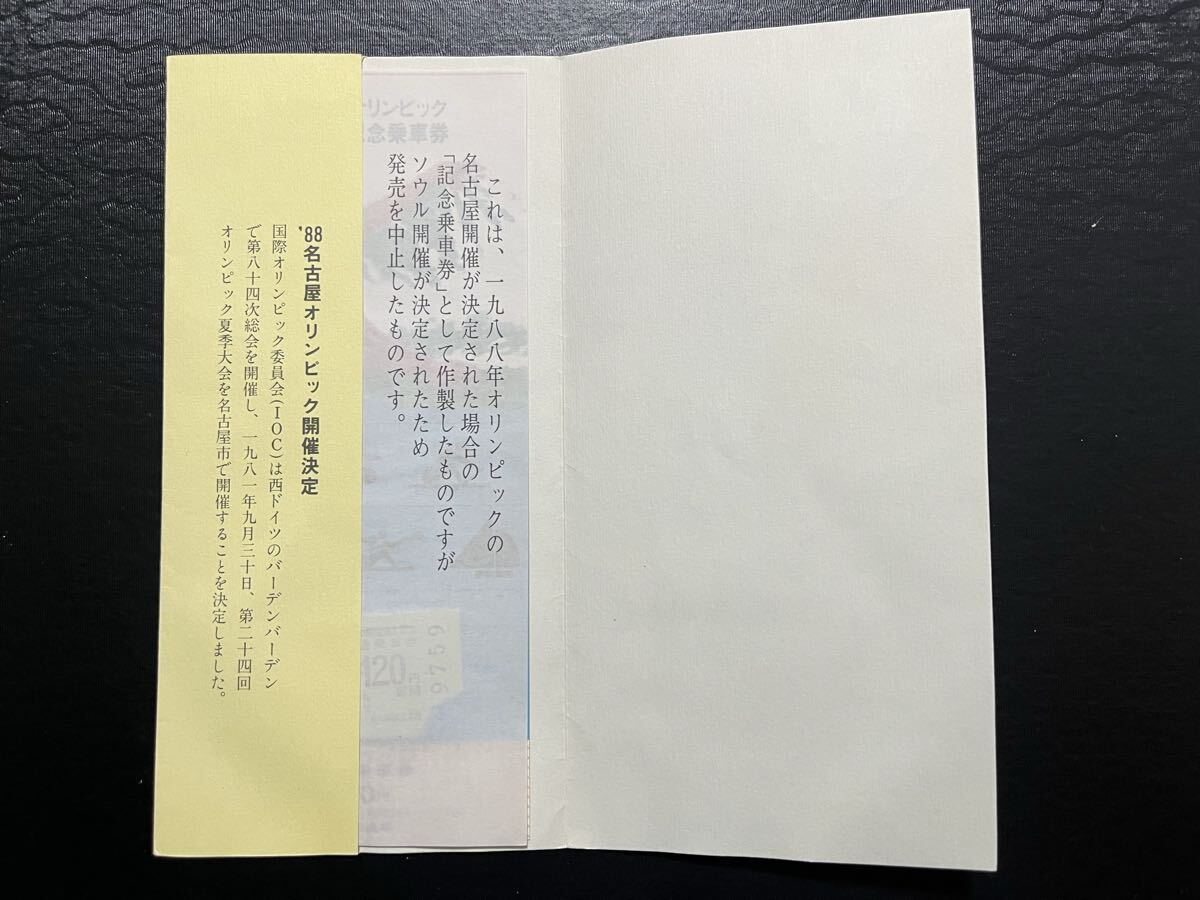 オリンピック
念乗車券
これは、一九八八年オリンピックの
名古屋開催が決定された場合の
「記念乗車券」として作製したものですが
ソウル開催が決定されたため
発売を中止したものです。
120円
9759
'88名古屋オリンピック開催決定
国際オリンピック委員会(IOC)は西ドイツのバーデンバーデン
で第八十四次総会を開催し、一九八一年九月三十日、第二十四回
オリンピック夏季大会を名古屋市で開催することを決定しました。